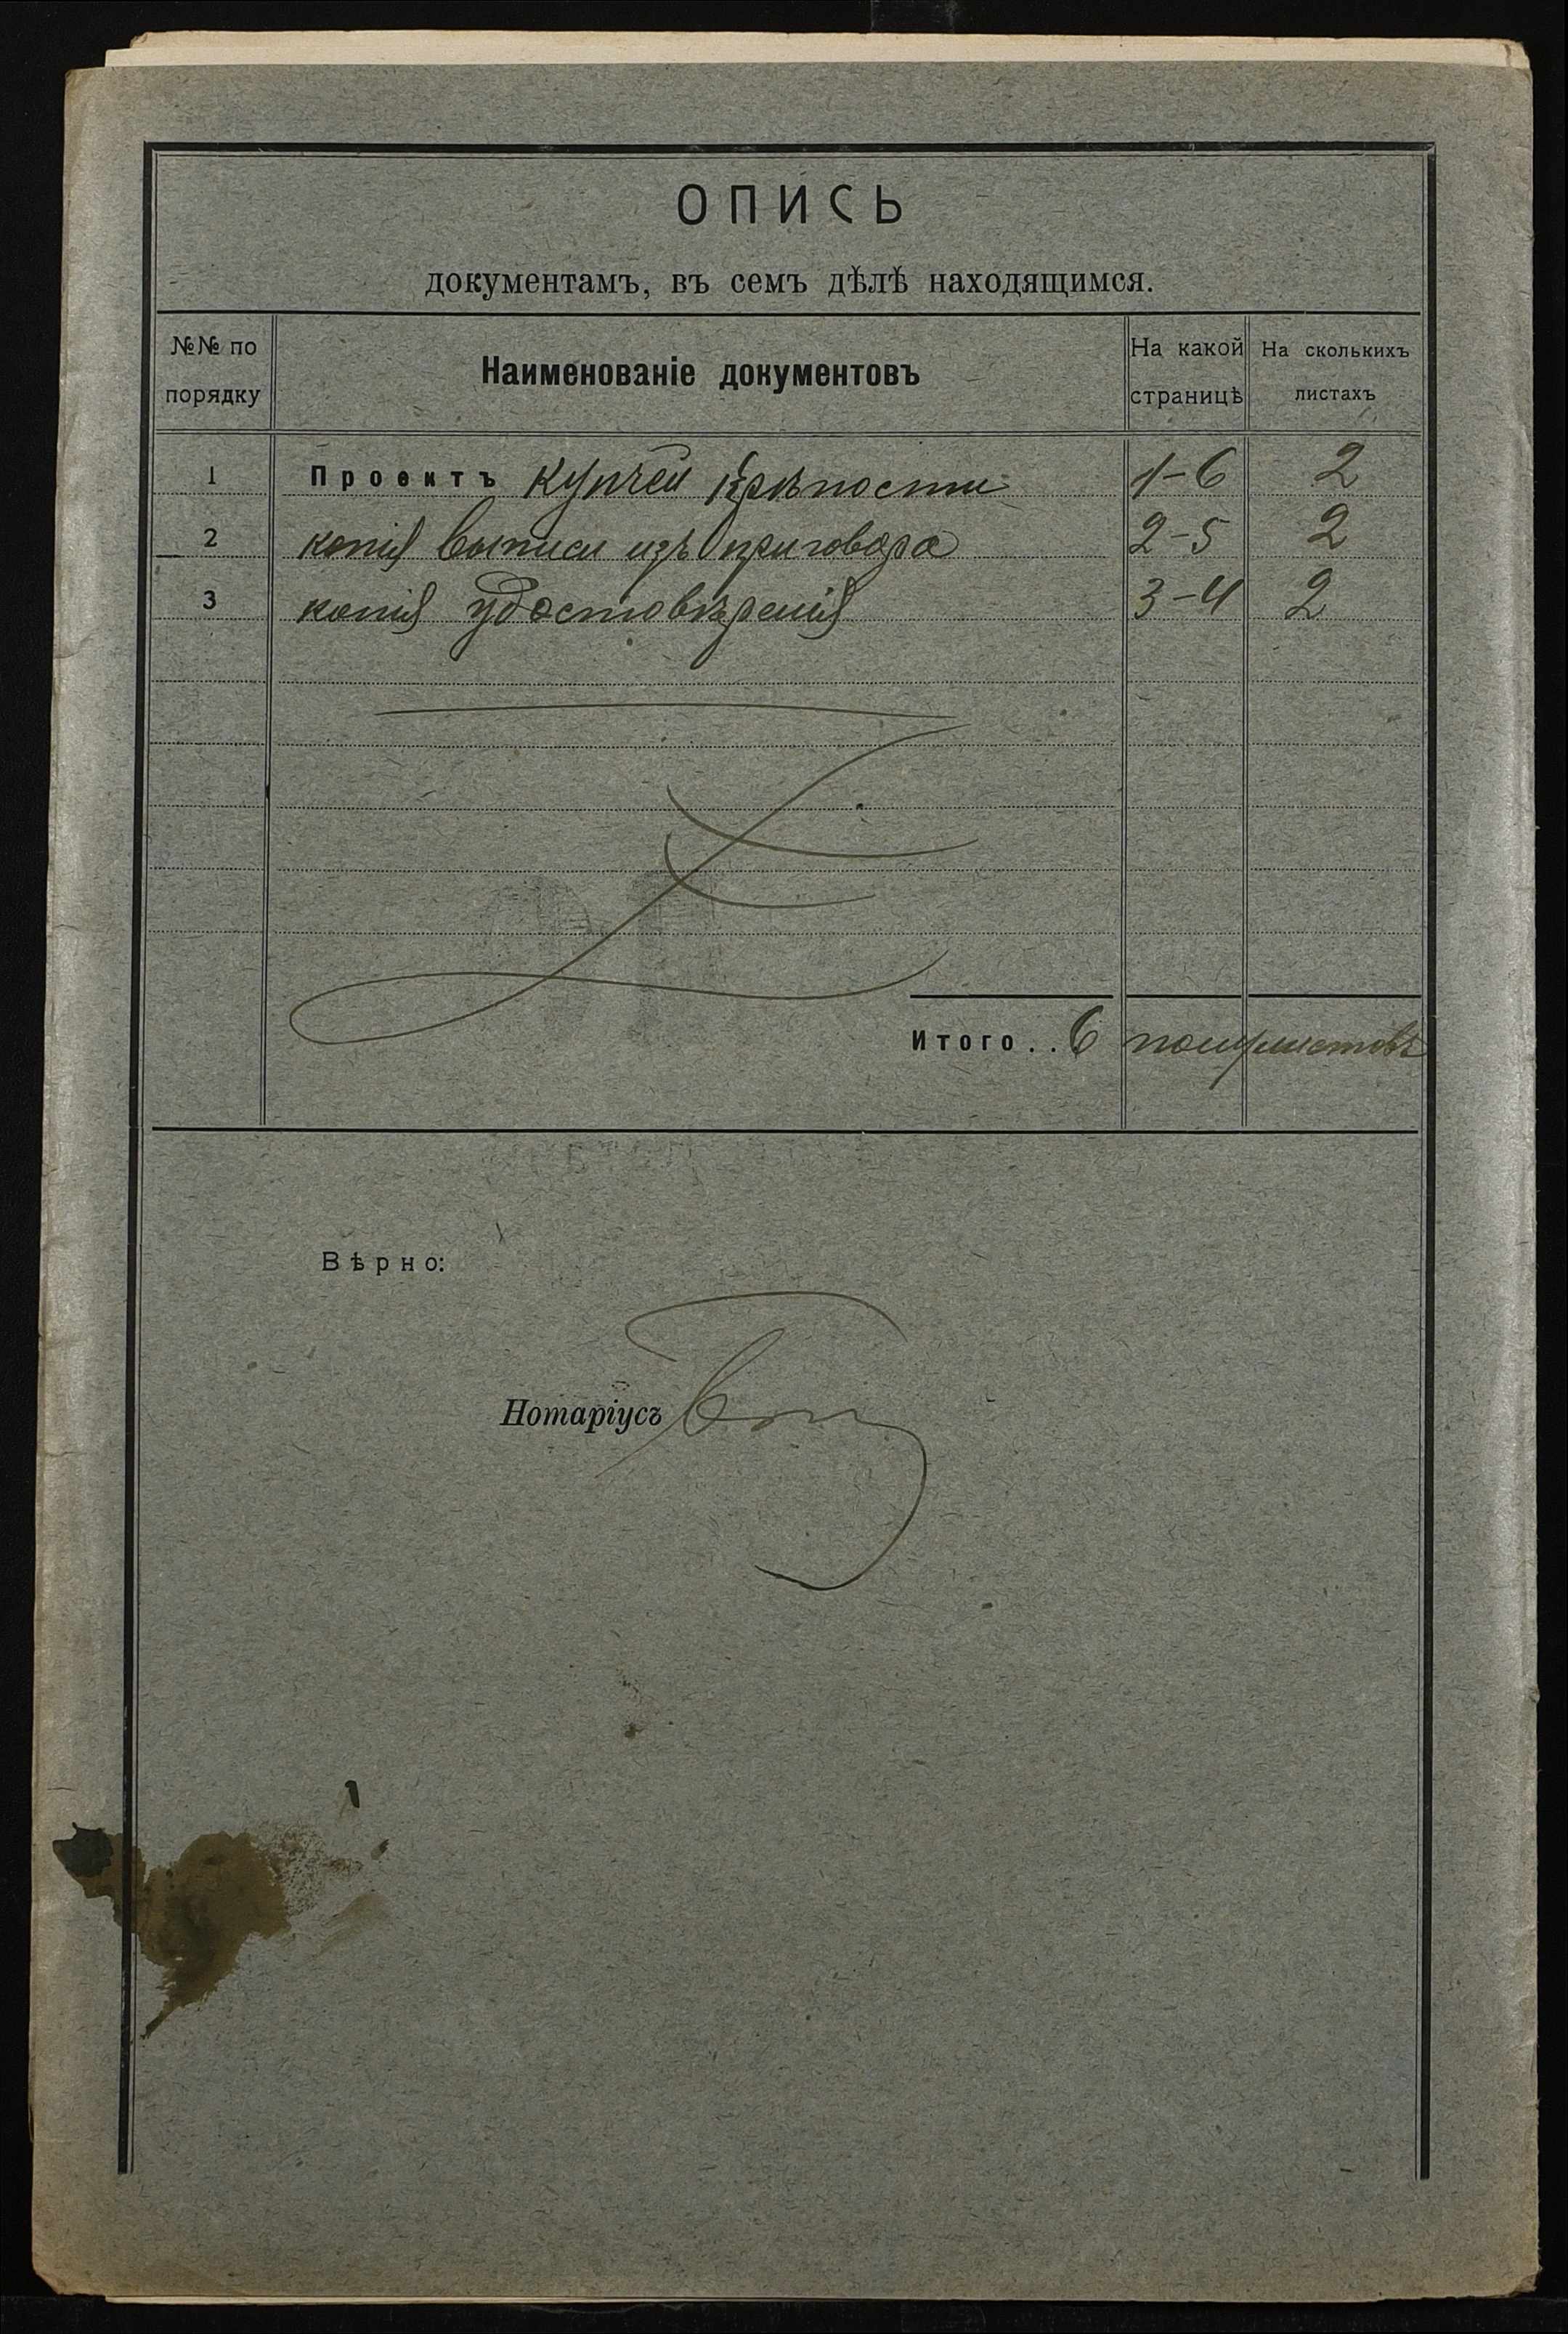 ОПИСЬ
документамъ, въ семъ дѣлѣ находящимся.
№№ по порядку
Наименованіе документовъ
На какой страницѣ
На сколькихъ листахъ
1 Проектъ купчей крѣпости 1-6 2
2 копія выписи изъ приговора 2-5 2
3 копія удостовѣренія 3-4 2
Итого.. 6 полулистовъ
Вѣрно:
Нотаріусъ